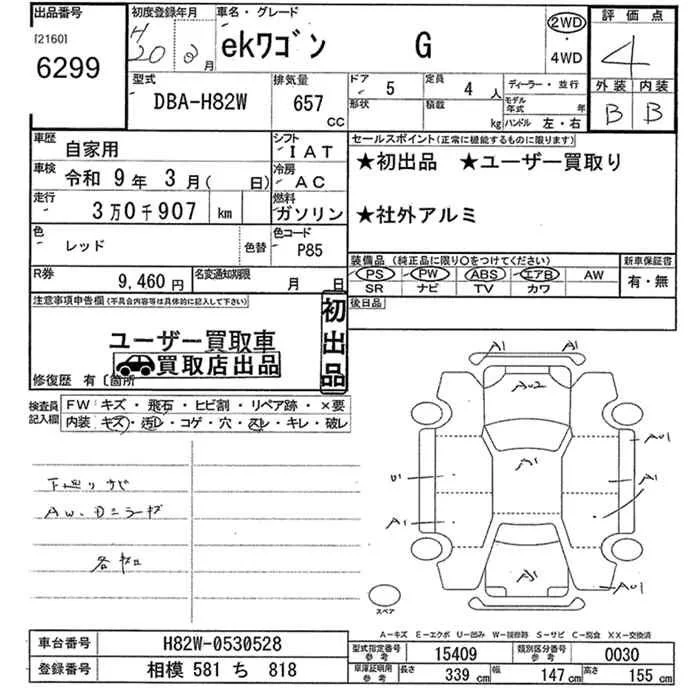 出品番号
[2160]
6299
初度登録年月
H
20 年 2 月
車名・グレード
ekワゴン G
2WD
4WD
評価点
4
外装 内装
B B
型式
DBA-H82W
排気量
657
CC
ドア
5
定員
4 人
形状
積載
kg
ディーラー・並行
モデル
年式 年
ハンドル 左・右
車歴
自家用
シフト
IAT
車検
令和 9年 3月( 日)
冷房
AC
走行
3万0千907 km
燃料
ガソリン
色
レッド
色替
色コード
P85
R券
9,460円
名変通知期限
月 日
セールスポイント(正常に機能するものに限ります)
★初出品 ★ユーザー買取り
★社外アルミ
装備品 (純正品に限り○をつけてください)
PS PW ABS エアB AW
SR ナビ TV カワ
新車保証書
有・無
後日品
注意事項申告欄(不具合内容等は具体的に記入して下さい)
ユーザー買取車
買取店出品
初出品
修復歴 有〔箇所
検査員
記入欄
FW キズ・飛石・ヒビ割・リペア跡・×要
内装 キズ・汚レ・コゲ・穴・スレ・キレ・破レ
下廻りサビ
各小キズ
A1 A1
AU2
A1
AU1
U1
A1
A1
A1
AU1
スペア
A-キズ E-エクボ U-凹み W-補修跡 S-サビ C-腐食 XX-交換済
車台番号
H82W-0530528
登録番号
相模 581 ち 818
型式指定番号
参考
15409
類別区分番号
参考
0030
車庫証明用
参考
長さ
339 cm
幅
147 cm
高さ
155 cm